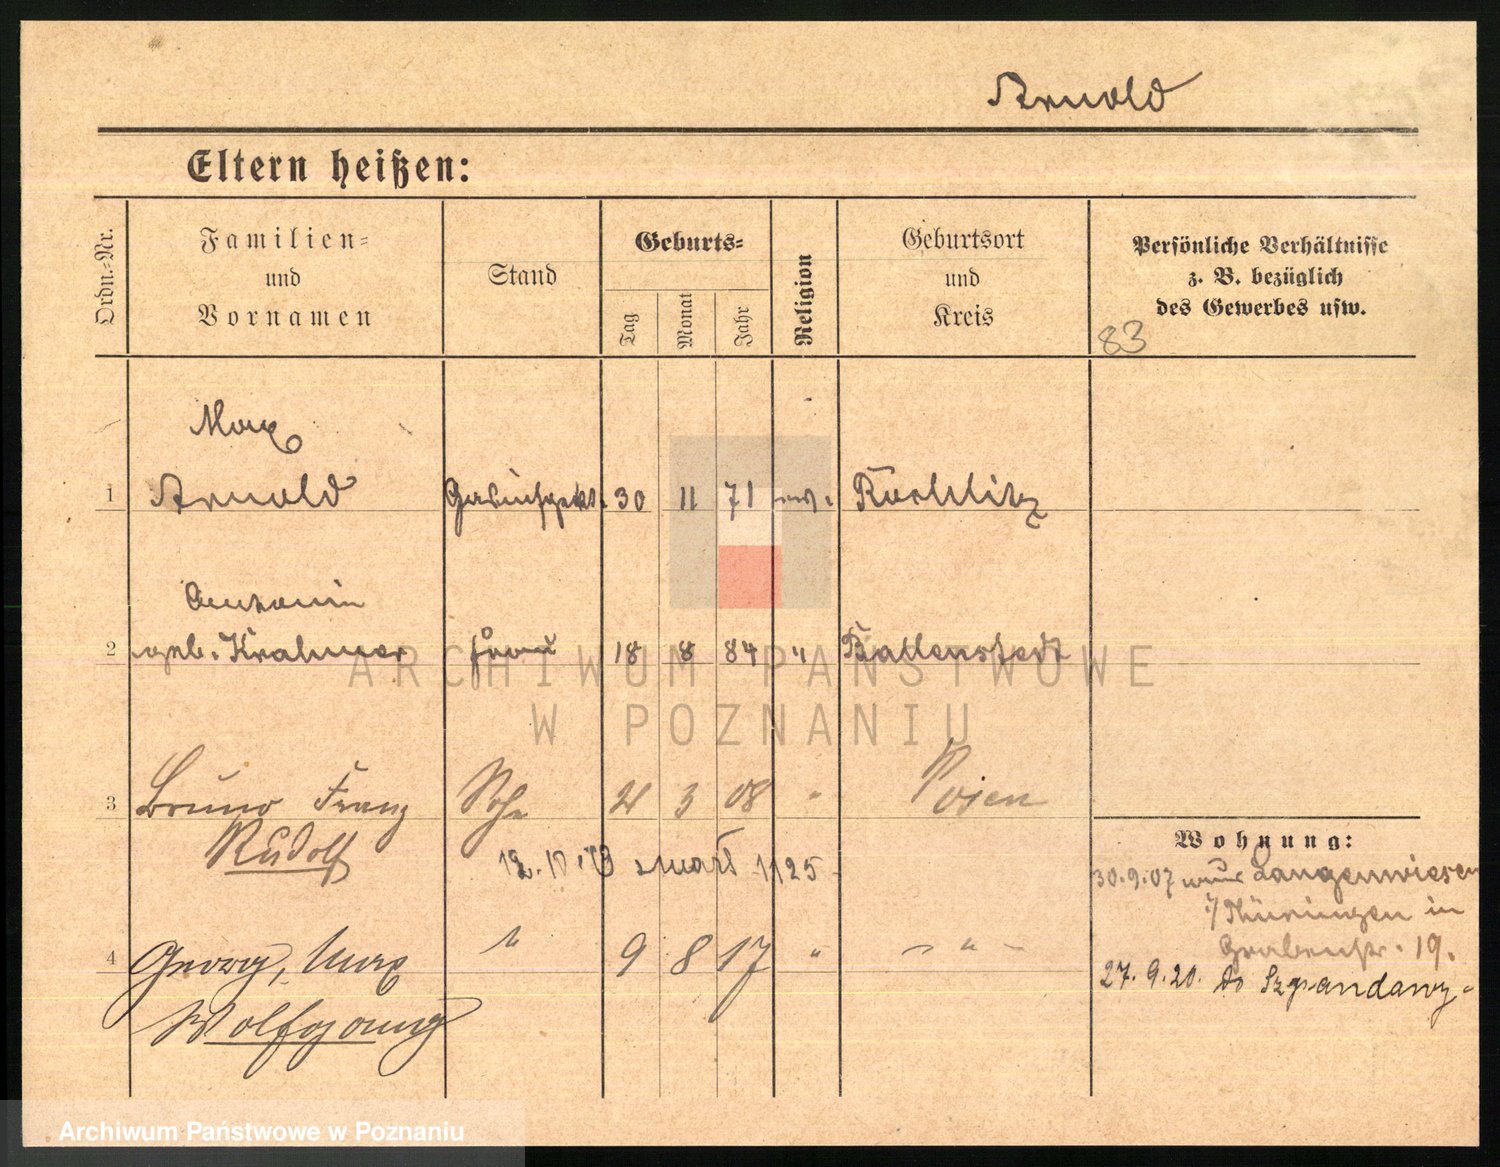 Arnold
Eltern heißen:
Ordn.-Nr.
Familien-
und
Vornamen
Stand
Geburts-
Tag
Monat
Jahr
Religion
Geburtsort
und
Kreis
Persönliche Verhältnisse
z. B. bezüglich
des Gewerbes usw.
83
Max
1 Arnold 30 11 71 Rochlitz
2 geb. Krahmer Frau 18 8 84 " Ballenstedt
3 Bruno Franz Sohn 21 3 08 " Posen
Rudolf
Wohnung:
30.9.07 Langenwiesen
Thüringen in
19.
4 Georg, Max " 9 8 17 " "
27.9.20. do
Wolfgang
ARCHIWUM PAŃSTWOWE
W POZNANIU
Archiwum Państwowe w Poznaniu